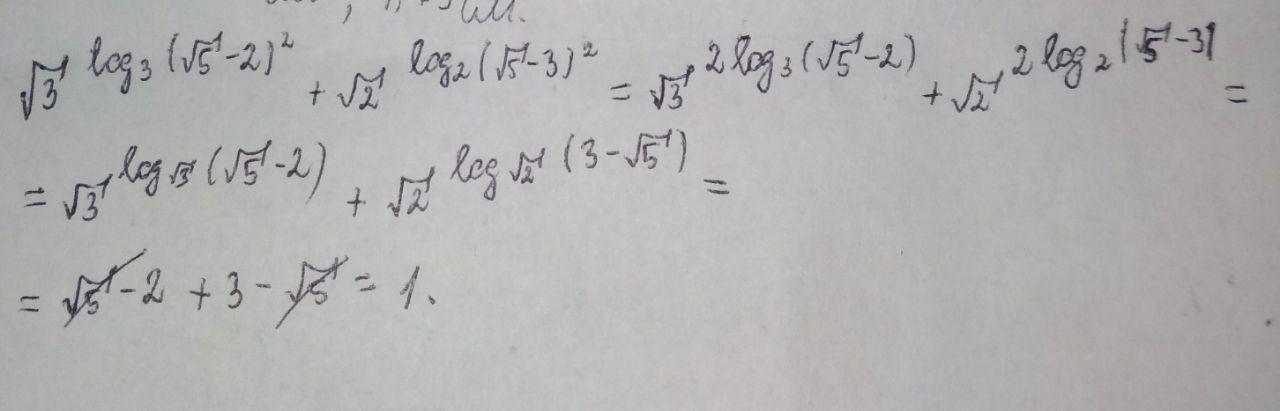 см.
√3^(log₃(√5-2)²) + √2^(log₂(√5-3)²) = √3^(2log₃(√5-2)) + √2^(2log₂|√5-3|) =
= √3^(log_√3(√5-2)) + √2^(log_√2(3-√5)) =
= √5-2 + 3-√5 = 1.